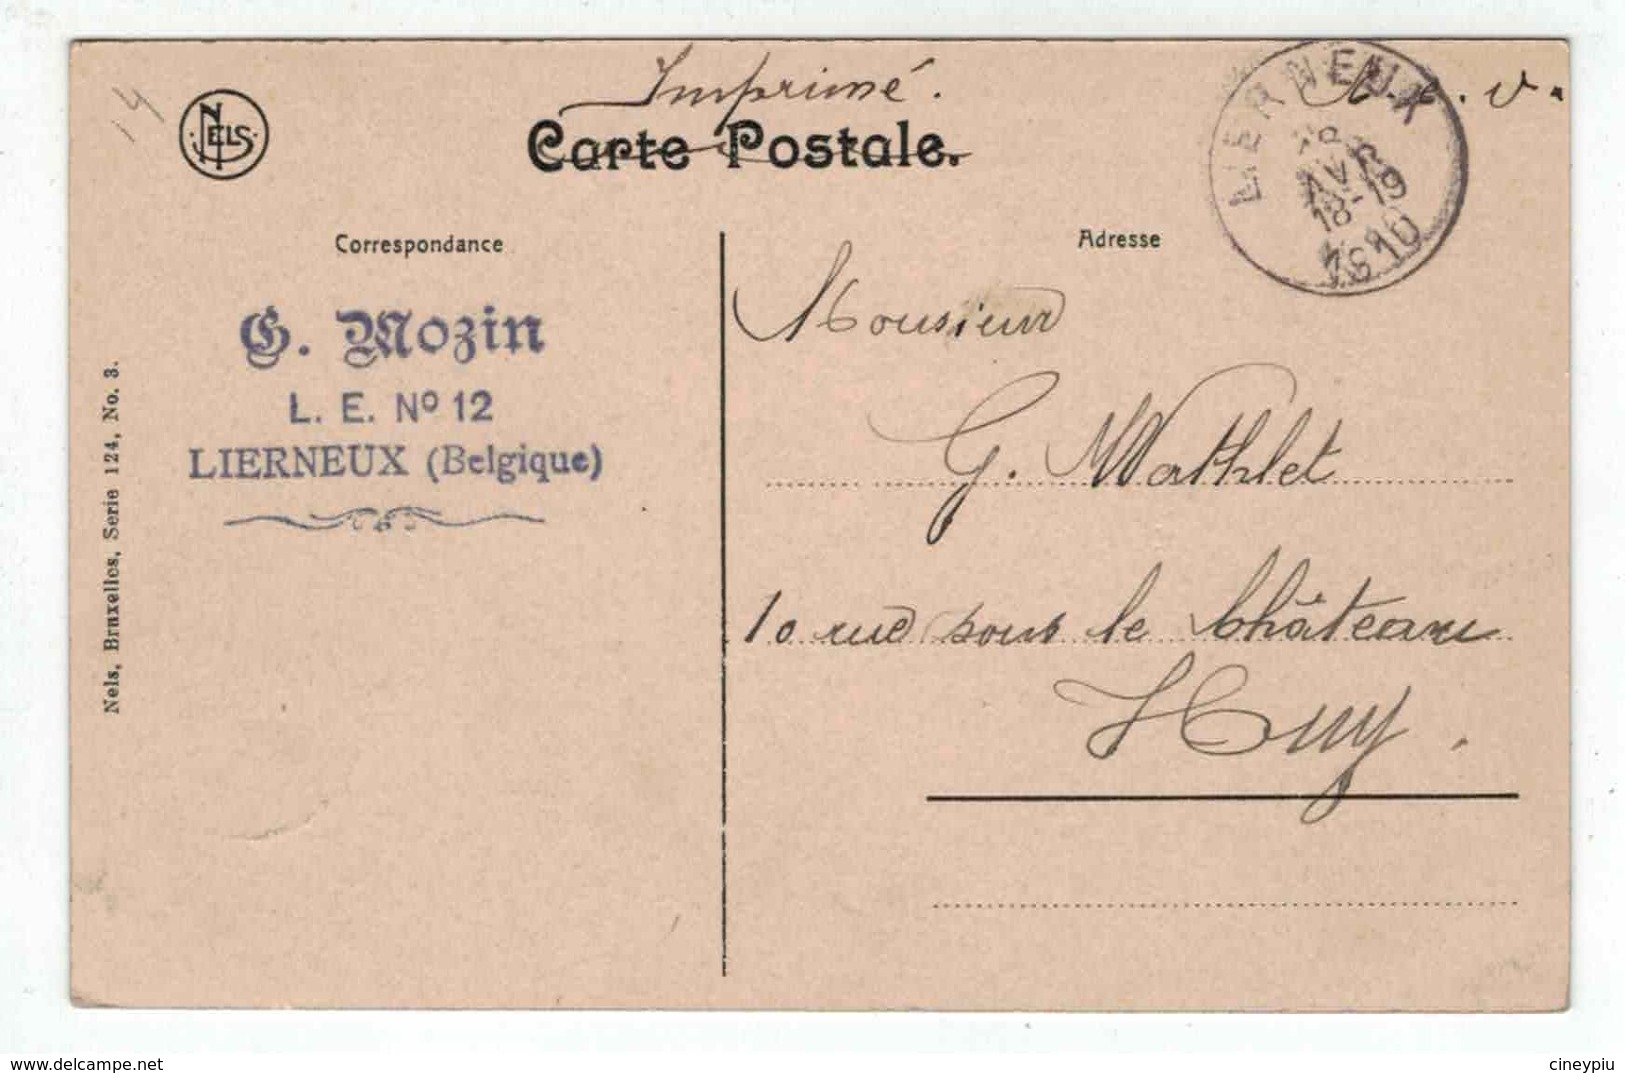 14
NELS
Imprimé.
Carte Postale.
LIERNEUX
AVR
18-19
1910
Correspondance
Adresse
G. Mozin
L. E. Nº 12
LIERNEUX (Belgique)
Nels, Bruxelles, Serie 124, No. 3.
Monsieur
G. Wathlet
10 rue sous le Château
Huy.
delcampe.net
cineypiu